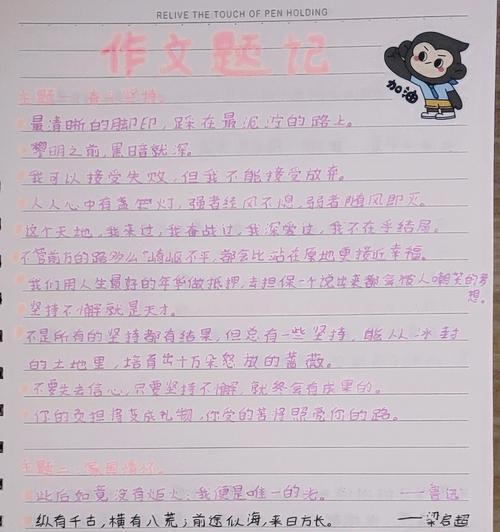 RELIVE THE TOUCH OF PEN HOLDING
作文题记
加油
主题一:奋斗坚持。
最清晰的脚印，踩在最泥泞的路上。
黎明之前，黑暗就深。
我可以接受失败，但我不能接受放弃。
人人心中有盏灯，强者经风不熄，弱者随风即灭。
这个天地，我来过，我奋战过，我深爱过，我不在乎结局。
不管前方的路多么崎岖不平，都会比站在原地更接近幸福。
我们用人生最好的年华做抵押，去担保一个说出来都会被人嘲笑的梦
想。
坚持不懈就是天才。
不是所有的坚持都有结果，但总有一些坚持，能从冰封
的土地里，培育出十万朵怒放的蔷薇。
不要失去信心，只要坚持不懈，就终会有成果的。
你的负担将变成礼物，你受的苦将照亮你的路。
主题二:家国情怀。
此后如竟没有炬火:我便是唯一的光。 ——鲁迅
纵有千古，横有八荒；前途似海，来日方长。 ——梁启超